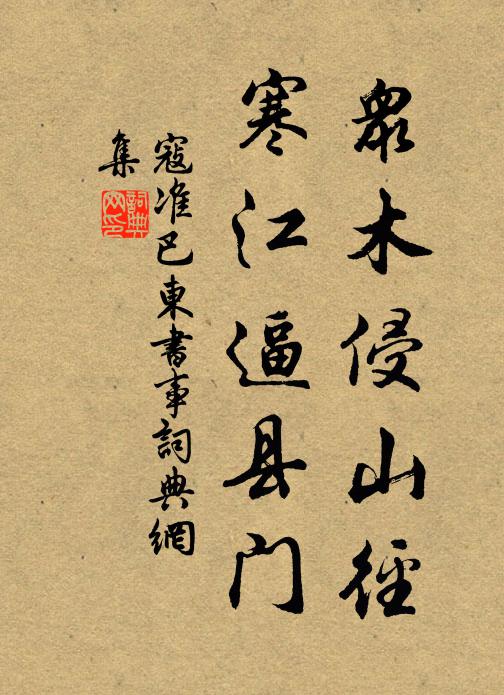 眾木侵山徑
寒江逼县门
寇准巴東書事詞典網
集
詞典
网印